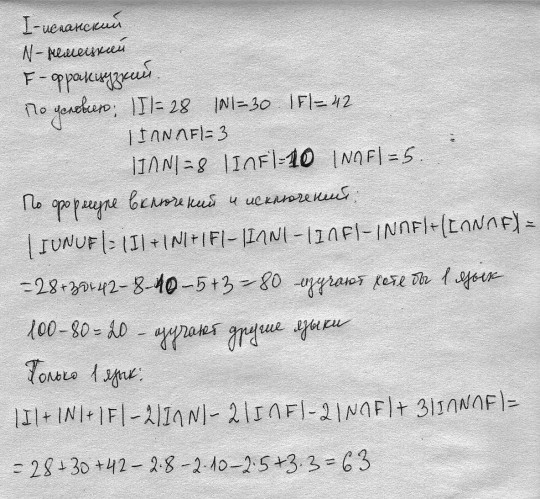 I - испанский
N - немецкий
F - французкий.
По условию: |I|= 28 |N|=30 |F|= 42
|I∩N∩F|=3
|I∩N|=8 |I∩F|=10 |N∩F|=5.
По формуле включений и исключений:
|I∪N∪F|=|I|+|N|+|F|-|I∩N|-|I∩F|-|N∩F|+|I∩N∩F|=
=28+30+42-8-10-5+3=80 -изучают хотя бы 1 язык
100-80=20 - изучают другие языки
Только 1 язык:
|I|+|N|+|F|-2|I∩N|-2|I∩F|-2|N∩F|+3|I∩N∩F|=
=28+30+42-2·8-2·10-2·5+3·3=63